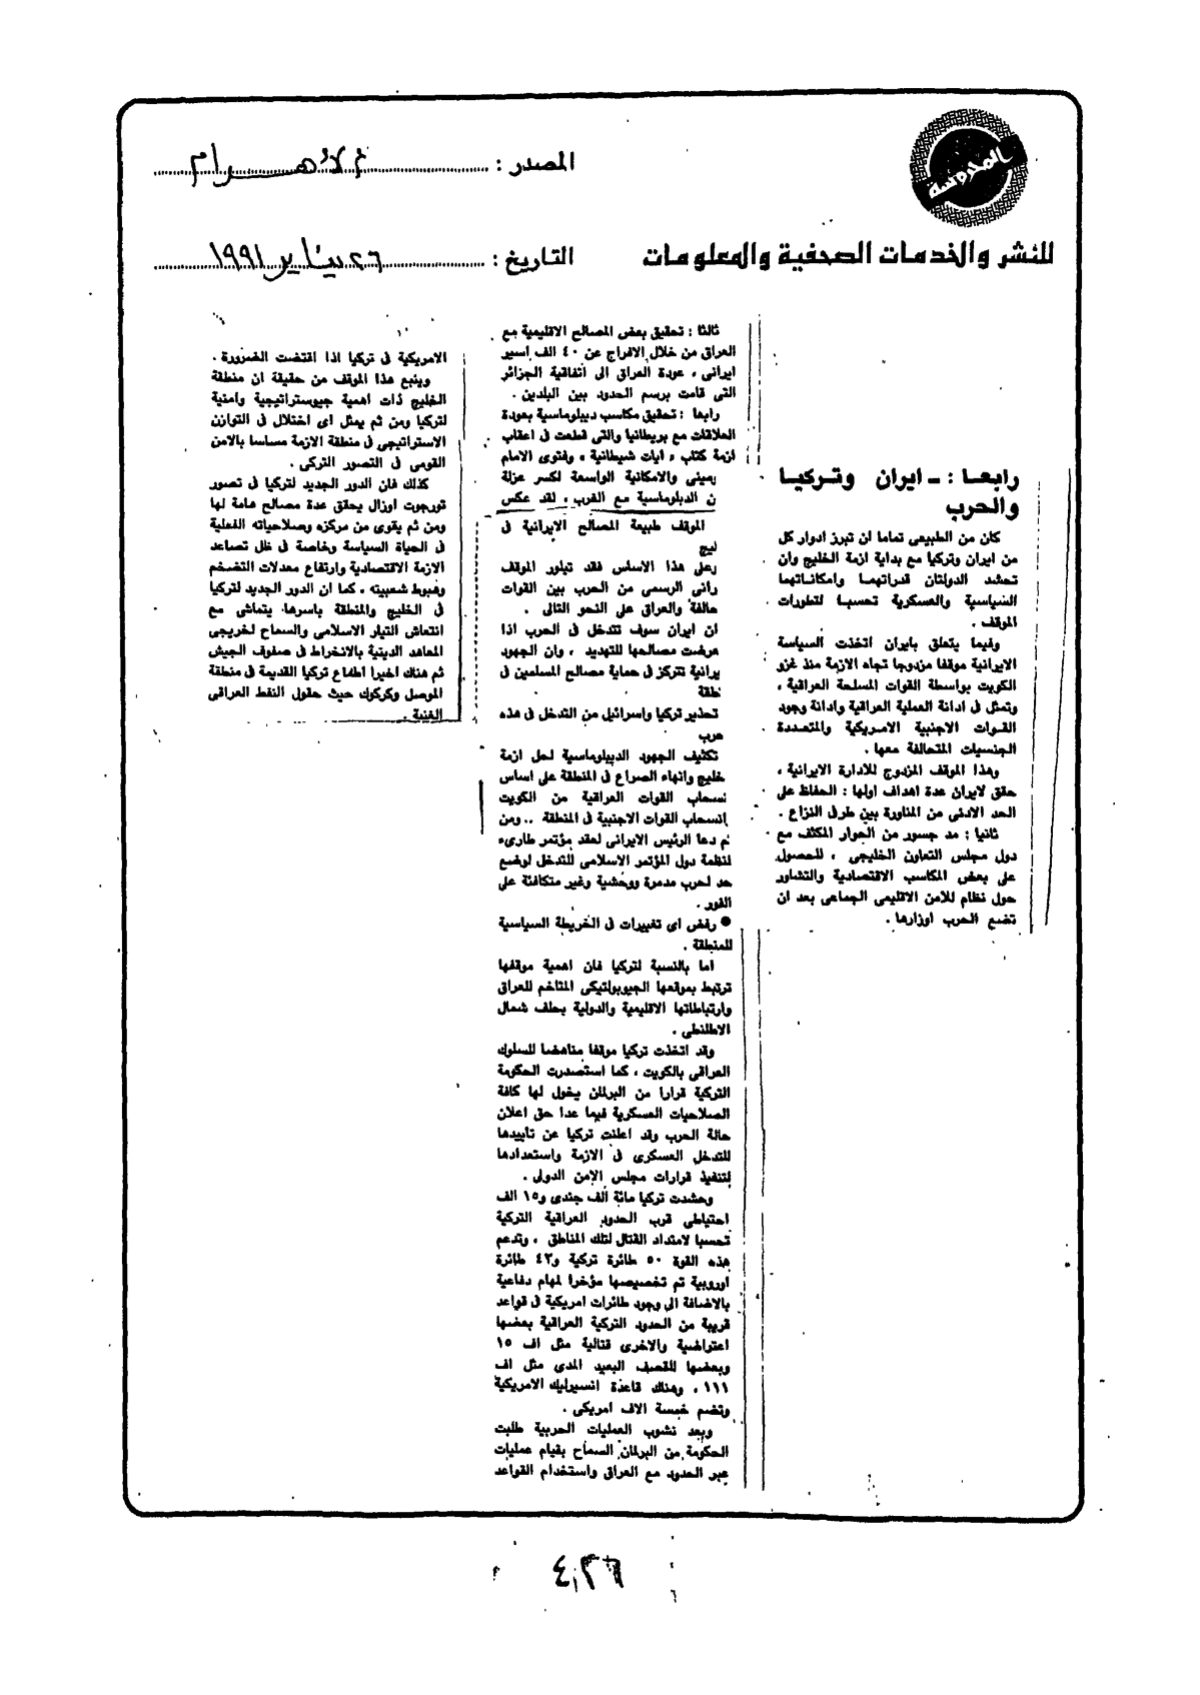 المحروسة
للنشر والخدمات الصحفية والمعلومات
المصدر : الأهرام
التاريخ : ٢٦ يناير ١٩٩١
رابعـا : ـ ايران وتركيـا
والحرب
كان من الطبيعى تماما ان تبرز ادوار كل
من ايران وتركيا مع بداية ازمة الخليج وان
تحشد الدولتان قدراتهما وامكاناتهما
السياسية والعسكرية تحسبا لتطورات
الموقف .
وفيما يتعلق بايران اتخذت السياسة
الايرانية موقفا مزدوجا تجاه الازمة منذ غزو
الكويت بواسطة القوات المسلحة العراقية ،
وتمثل فى ادانة العملية العراقية وادانة وجود
القوات الاجنبية الامريكية والمتعددة
الجنسيات المتحالفة معها .
وهذا الموقف المزدوج للادارة الايرانية ،
حقق لايران عدة اهداف اولها : الحفاظ على
الحد الادنى من المناورة بين طرفى النزاع .
ثانيا : مد جسور من الحوار المكثف مع
دول مجلس التعاون الخليجى ، للحصول
على بعض المكاسب الاقتصادية والتشاور
حول نظام للامن الاقليمى الجماعى بعد ان
تضع الحرب اوزارها .
ثالثا : تحقيق بعض المصالح الاقليمية مع
العراق من خلال الافراج عن ٤٠ الف اسير
ايرانى ، عودة العراق الى اتفاقية الجزائر
التى قامت برسم الحدود بين البلدين .
رابعا : تحقيق مكاسب دبلوماسية بعودة
العلاقات مع بريطانيا والتى قطعت فى اعقاب
ازمة كتاب « ايات شيطانية » وفتوى الامام
ميينى والامكانية الواسعة لكسر عزلة
ن الدبلوماسية مع الغرب ، لقد عكس
الموقف طبيعة المصالح الايرانية فى
ليج
وعلى هذا الاساس فقد تبلور الموقف
رانى الرسمى من الحرب بين القوات
حالفة والعراق على النحو التالى .
ان ايران سوف تتدخل فى الحرب اذا
عرضت مصالحها للتهديد ، وان الجهود
يرانية تتركز فى حماية مصالح المسلمين فى
نطقة
تحذير تركيا واسرائيل من التدخل فى هذه
حرب
تكثيف الجهود الدبلوماسية لحل ازمة
خليج وانهاء الصراع فى المنطقة على اساس
نسحاب القوات العراقية من الكويت
إنسحاب القوات الاجنبية فى المنطقة .. ومن
ثم دعا الرئيس الايرانى لعقد مؤتمر طارىء
لمنظمة دول المؤتمر الاسلامى للتدخل لوضع
حد لحرب مدمرة ووحشية وغير متكافئة على
الفور .
● رفض اى تغييرات فى الخريطة السياسية
للمنطقة .
اما بالنسبة لتركيا فان اهمية موقفها
ترتبط بموقعها الجيوبولتيكى المتاخم للعراق
وارتباطاتها الاقليمية والدولية بحلف شمال
الاطلنطى .
وقد اتخذت تركيا موقفا مناهضا للسلوك
العراقى بالكويت ، كما استصدرت الحكومة
التركية قرارا من البرلمان يخول لها كافة
الصلاحيات العسكرية فيما عدا حق اعلان
حالة الحرب وقد اعلنت تركيا عن تأييدها
للتدخل العسكرى فى الازمة واستعدادها
لتنفيذ قرارات مجلس الامن الدولى .
وحشدت تركيا مائة الف جندى و١٥ الف
احتياطى قرب الحدود العراقية التركية
تحسبا لامتداد القتال لتلك المناطق ، وتدعم
هذه القوة ٥٠ طائرة تركية و٤٢ طائرة
اوروبية تم تخصيصها مؤخرا لمهام دفاعية
بالاضافة الى وجود طائرات امريكية فى قواعد
قريبة من الحدود التركية العراقية بعضها
اعتراضية والاخرى قتالية مثل اف ١٥
وبعضها للقصف البعيد المدى مثل اف
١١١ ، وهناك قاعدة انسيرليك الامريكية
وتضم خمسة الاف امريكى .
وبعد نشوب العمليات الحربية طلبت
الحكومة من البرلمان السماح بقيام عمليات
عبر الحدود مع العراق واستخدام القواعد
الامريكية فى تركيا اذا اقتضت الضرورة .
وينبع هذا الموقف من حقيقة ان منطقة
الخليج ذات اهمية جيوستراتيجية وامنية
لتركيا ومن ثم يمثل اى اختلال فى التوازن
الاستراتيجى فى منطقة الازمة مساسا بالامن
القومى فى التصور التركى .
كذلك فان الدور الجديد لتركيا فى تصور
تورجوت اوزال يحقق عدة مصالح هامة لها
ومن ثم يقوى من مركزه وصلاحياته الفعلية
فى الحياة السياسة وخاصة فى ظل تصاعد
الازمة الاقتصادية وارتفاع معدلات التضخم
وهبوط شعبيته ، كما ان الدور الجديد لتركيا
فى الخليج والمنطقة باسرها يتماشى مع
انتعاش التيار الاسلامى والسماح لخريجى
المعاهد الدينية بالانخراط فى صفوف الجيش
ثم هناك اخيرا اطماع تركيا القديمة فى منطقة
الموصل وكركوك حيث حقول النفط العراقى
الغنية .